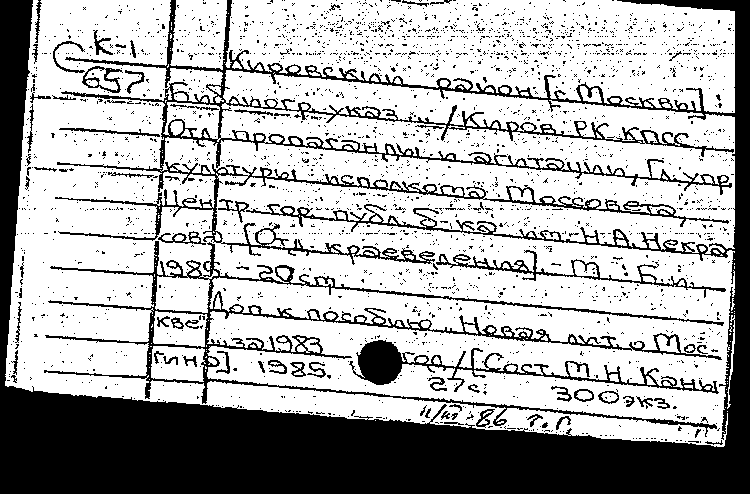 К-1
657
Кировский район [г. Москвы] :
Библиогр. указ. ... / Киров. РК КПСС,
Отд. пропаганды и агитации, Гл. упр.
культуры исполкома Моссовета,
Центр. гор. публ. б-ка им. Н.А. Некра
сова, [Отд. краеведения]. - М. : Б.и.,
1985. - 20 ст.
Доп. к пособию „Новая лит. о Мос-
кве"
... за 1983 год / [Сост. М.Н. Каны-
гина]. 1985. 27 с. 300 экз.
11/III-86